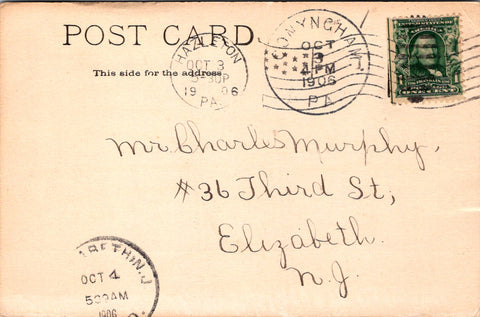 POST CARD.
This side for the address
HAZLETON
OCT 3
30P
19 06
PA.
CONYNGHAM
OCT
3
4 PM
1906
PA.
ONE CENT
Mr Charles Murphy,
#36 Third St,
Elizabeth.
N.J.
OCT 4
530AM
1906